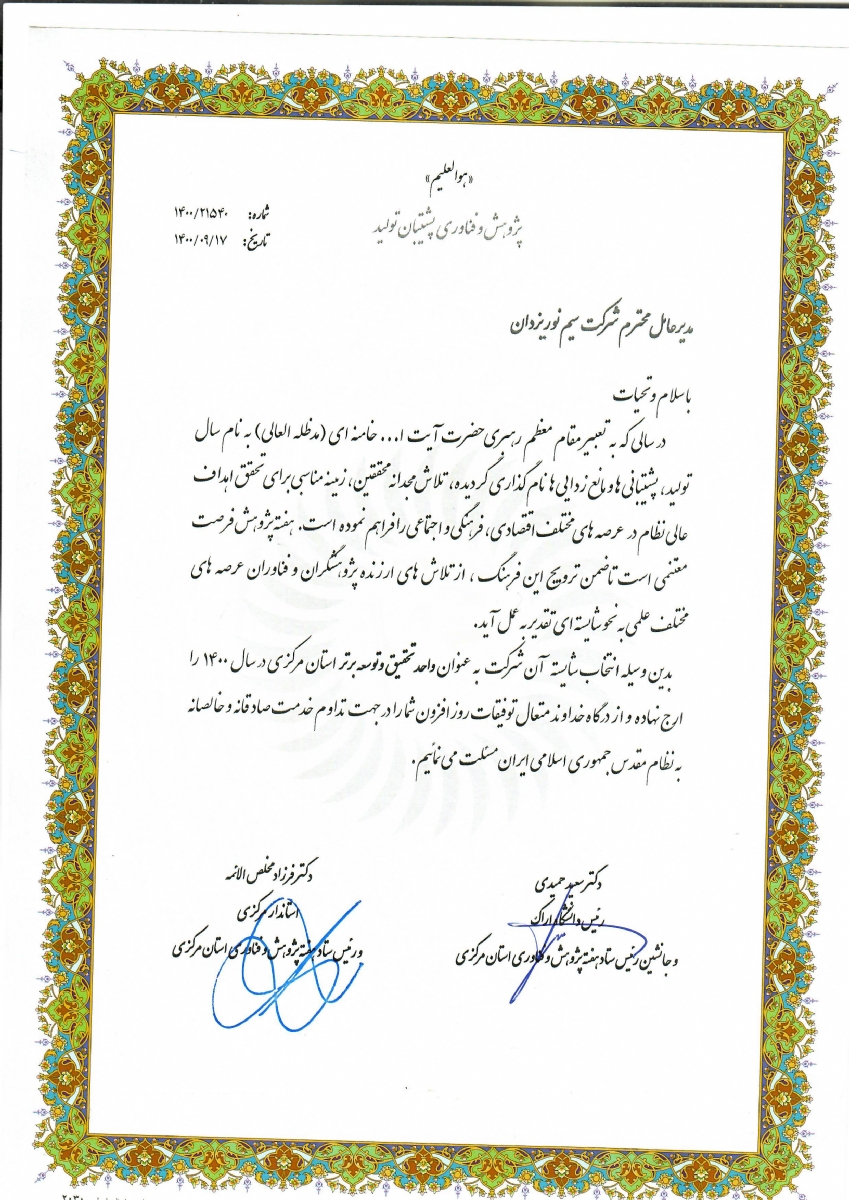 «هوالعلیم»
پژوهش و فناوری پشتیبان تولید
شماره: ۱۴۰۰/۲۱۵۴۰
تاریخ: ۱۴۰۰/۰۹/۱۷
مدیرعامل محترم شرکت سیم نور یزدان
با سلام و تحیات
در سالی که به تعبیر مقام معظم رهبری حضرت آیت ا... خامنه ای (مدظله العالی) به نام سال
تولید، پشتیبانی ها و مانع زدایی ها نام گذاری گردیده، تلاش مجدانه محققین، زمینه مناسبی برای تحقق اهداف
عالی نظام در عرصه های مختلف اقتصادی، فرهنگی و اجتماعی را فراهم نموده است. هفته پژوهش فرصت
مغتنمی است تا ضمن ترویج این فرهنگ، از تلاش های ارزنده پژوهشگران و فناوران عرصه های
مختلف علمی به نحو شایسته ای تقدیر به عمل آید.
بدین وسیله انتخاب شایسته آن شرکت به عنوان واحد تحقیق و توسعه برتر استان مرکزی در سال ۱۴۰۰ را
ارج نهاده و از درگاه خداوند متعال توفیقات روز افزون شما را در جهت تداوم خدمت صادقانه و خالصانه
به نظام مقدس جمهوری اسلامی ایران مسئلت می نمائیم.
دکتر سعید حمیدی
رئیس دانشگاه اراک
و جانشین رئیس ستاد هفته پژوهش و فناوری استان مرکزی
دکتر فرزاد مخلص الائمه
استاندار مرکزی
و رئیس ستاد هفته پژوهش و فناوری استان مرکزی